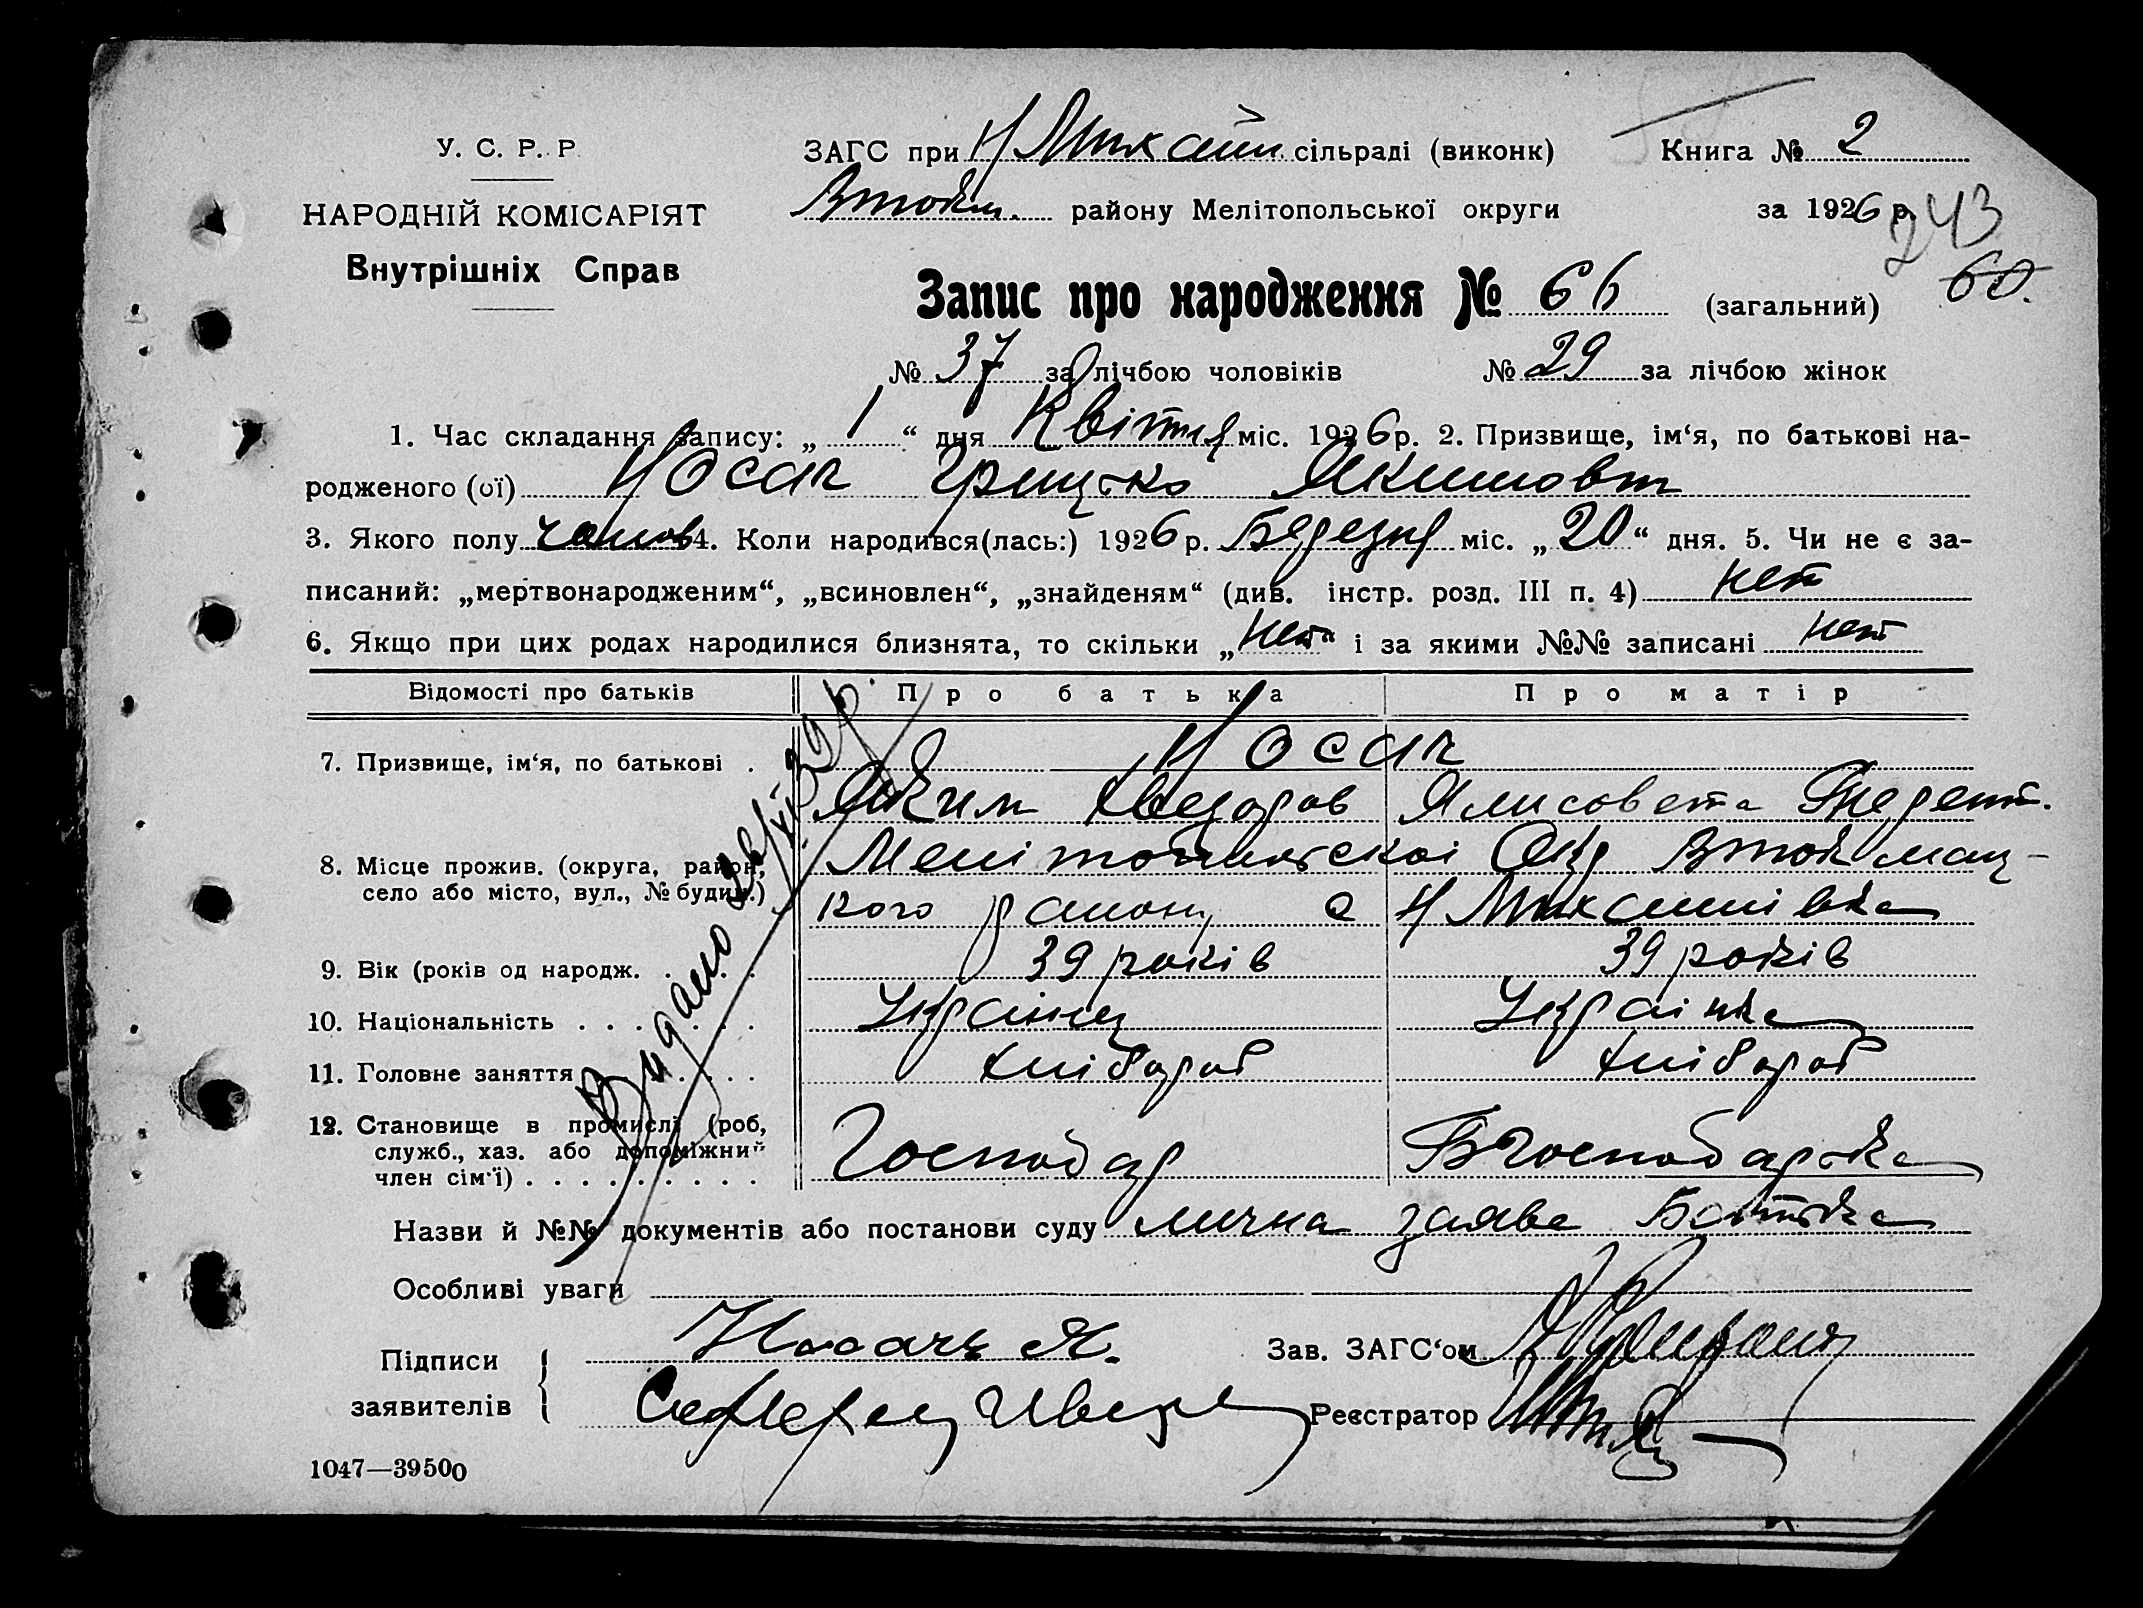 У. С. Р. Р
НАРОДНІЙ КОМІСАРІЯТ
Внутрішніх Справ
ЗАГС при Н Михайлі сільраді (виконк)
Книга № 2
Втокм. району Мелітопольської округи
за 1926 р.
243
60.
Запис про народження № 66 (загальний)
№ 37 за лічбою чоловіків № 29 за лічбою жінок
1. Час складання запису: „ 1 “ дня Квітня міс. 1926 р. 2. Призвище, ім‘я, по батькові на-
родженого (ої) Носач Грицько Якимович
3. Якого полу чолов 4. Коли народився(лась:) 1926 р. Березня міс. „ 20 “ дня. 5. Чи не є за-
писаний: „мертвонародженим“, „всиновлен“, „знайденям“ (див. інстр. розд. III п. 4) нет
6. Якщо при цих родах народилися близнята, то скільки „ нет “ і за якими №№ записані нет
Відомості про батьків Про батька Про матір
7. Призвище, ім‘я, по батькові . Носач
Яким Хведоров Ялисовета Терент.
8. Місце прожив. (округа, район, Мелітопильскоі Окр Втокмац-
село або місто, вул., № будин.) кого району с Н Михайлівка
9. Вік (років од народж. . . . . 39 років 39 років
10. Національність . . . . . . . Українец Українка
11. Головне заняття . . . . . . . хлібороб хлібороб
12. Становище в промислі (роб,
служб., хаз. або допоміжний Господар Господарка
член сім‘ї) . . . . . . . . .
Видано
Назви й №№ документів або постанови суду лична заява Батька
Особливі уваги
Підписи Носачь Я. Зав. ЗАГС‘ом
заявителів Реєстратор
1047—39500